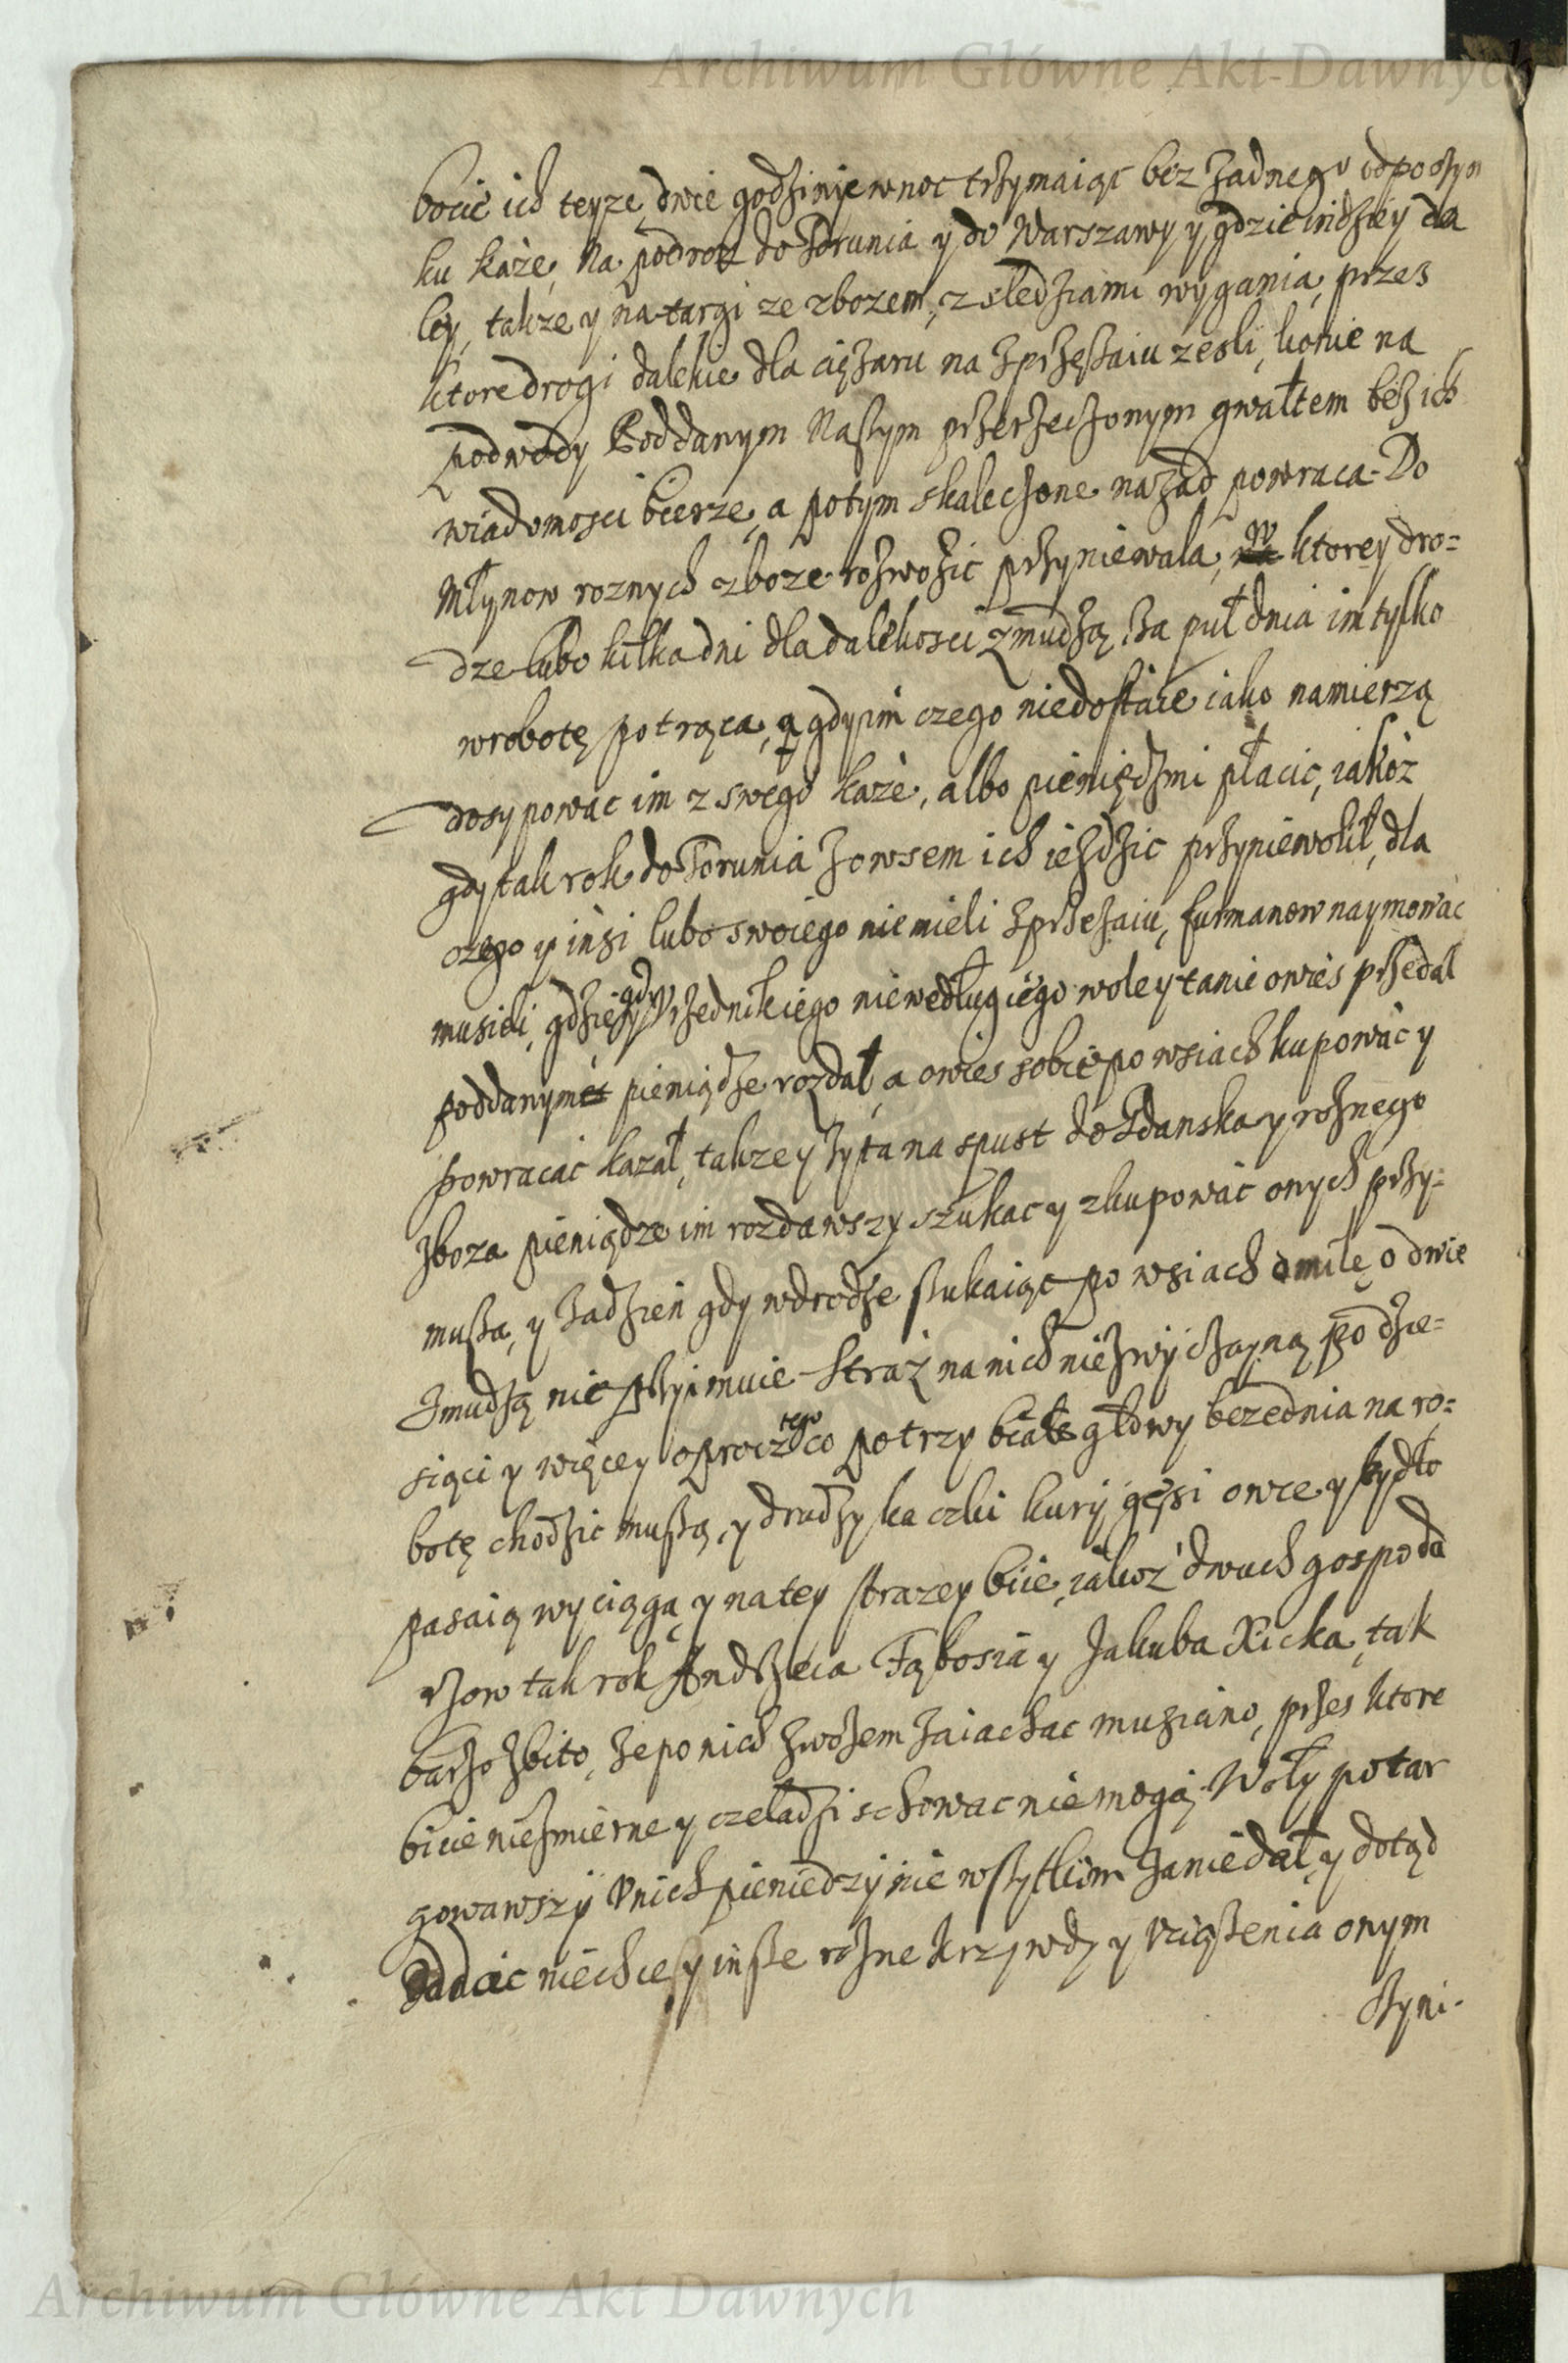 Archiwum Główne Akt Dawnych
bocie ich teyze dwie godzinie w noc trzymaiąc bez zadnego odpoczyn
ku każe, Na podroz do Torunia y do Warszawy y gdzie indziey da
ley, takze y na targi ze zbozem, z sledziami wygania, przez
ktore drogi dalekie dla ciężaru na zprzęzaiu zesli, konie na
podwody Poddanym Naszym przerzeczonym gwałtem bez ich
wiadomosci bierze, a potym skaleczone nazad powraca. Do
Młynow roznych zboze rozwozic przyniewala, w ktorey dro=
dze lubo kilka dni dla dalekosci zmudzą, za puł dnia im tylko
w robotę potrąca, a gdy im czego niedostaie iako namierzą
dosypowac im z swego każe, albo pieniędzmi płacic, iakoż
gdy tak rok do Torunia zowsem ich iezdzic przyniewolił, dla
czego y insi lubo swoiego nie mieli zprzezaiu, furmanow naymowac
musieli, gdzie gdy Vrzednik iego nie według iego woley tanie owies przedał
poddanym pieniądze rozdał, a owies sobie po wsiach kupowac y
powracac kazał, takze y zyta na spust do Gdanska y roznego
zboza pieniądze im rozdawszy szukac y zkupowac onych przy=
musza, y za dzien gdy w drodze szukaiąc po wsiach o milę, o dwie
zmudzą nie przyimuie. Straż na nich niezwyczayną po dzie=
sięci y więcey oprocz tego co po trzy białe głowy beze dnia na ro=
botę chodzic muszą, y drudzy kaczki kury gęsi owce y bydło
pasaią wyciąga y na tey strazey biie, iakoż dwuch gospoda
rzow tak rok Andrzeia Fąbosia y Jakuba Kicka, tak
barzo zbito, ze po nich zwozem zaiachac musiano, przes ktore
bicie niezmierne y czeladzi schowac nie mogą. Woły potar
gowawszy v nich pieniedzy nie wszytkim za nie dał, y dotąd
oddac niechce, y insze rozne krzywdy y vciązenia onym
czyni.
Archiwum Główne Akt Dawnych